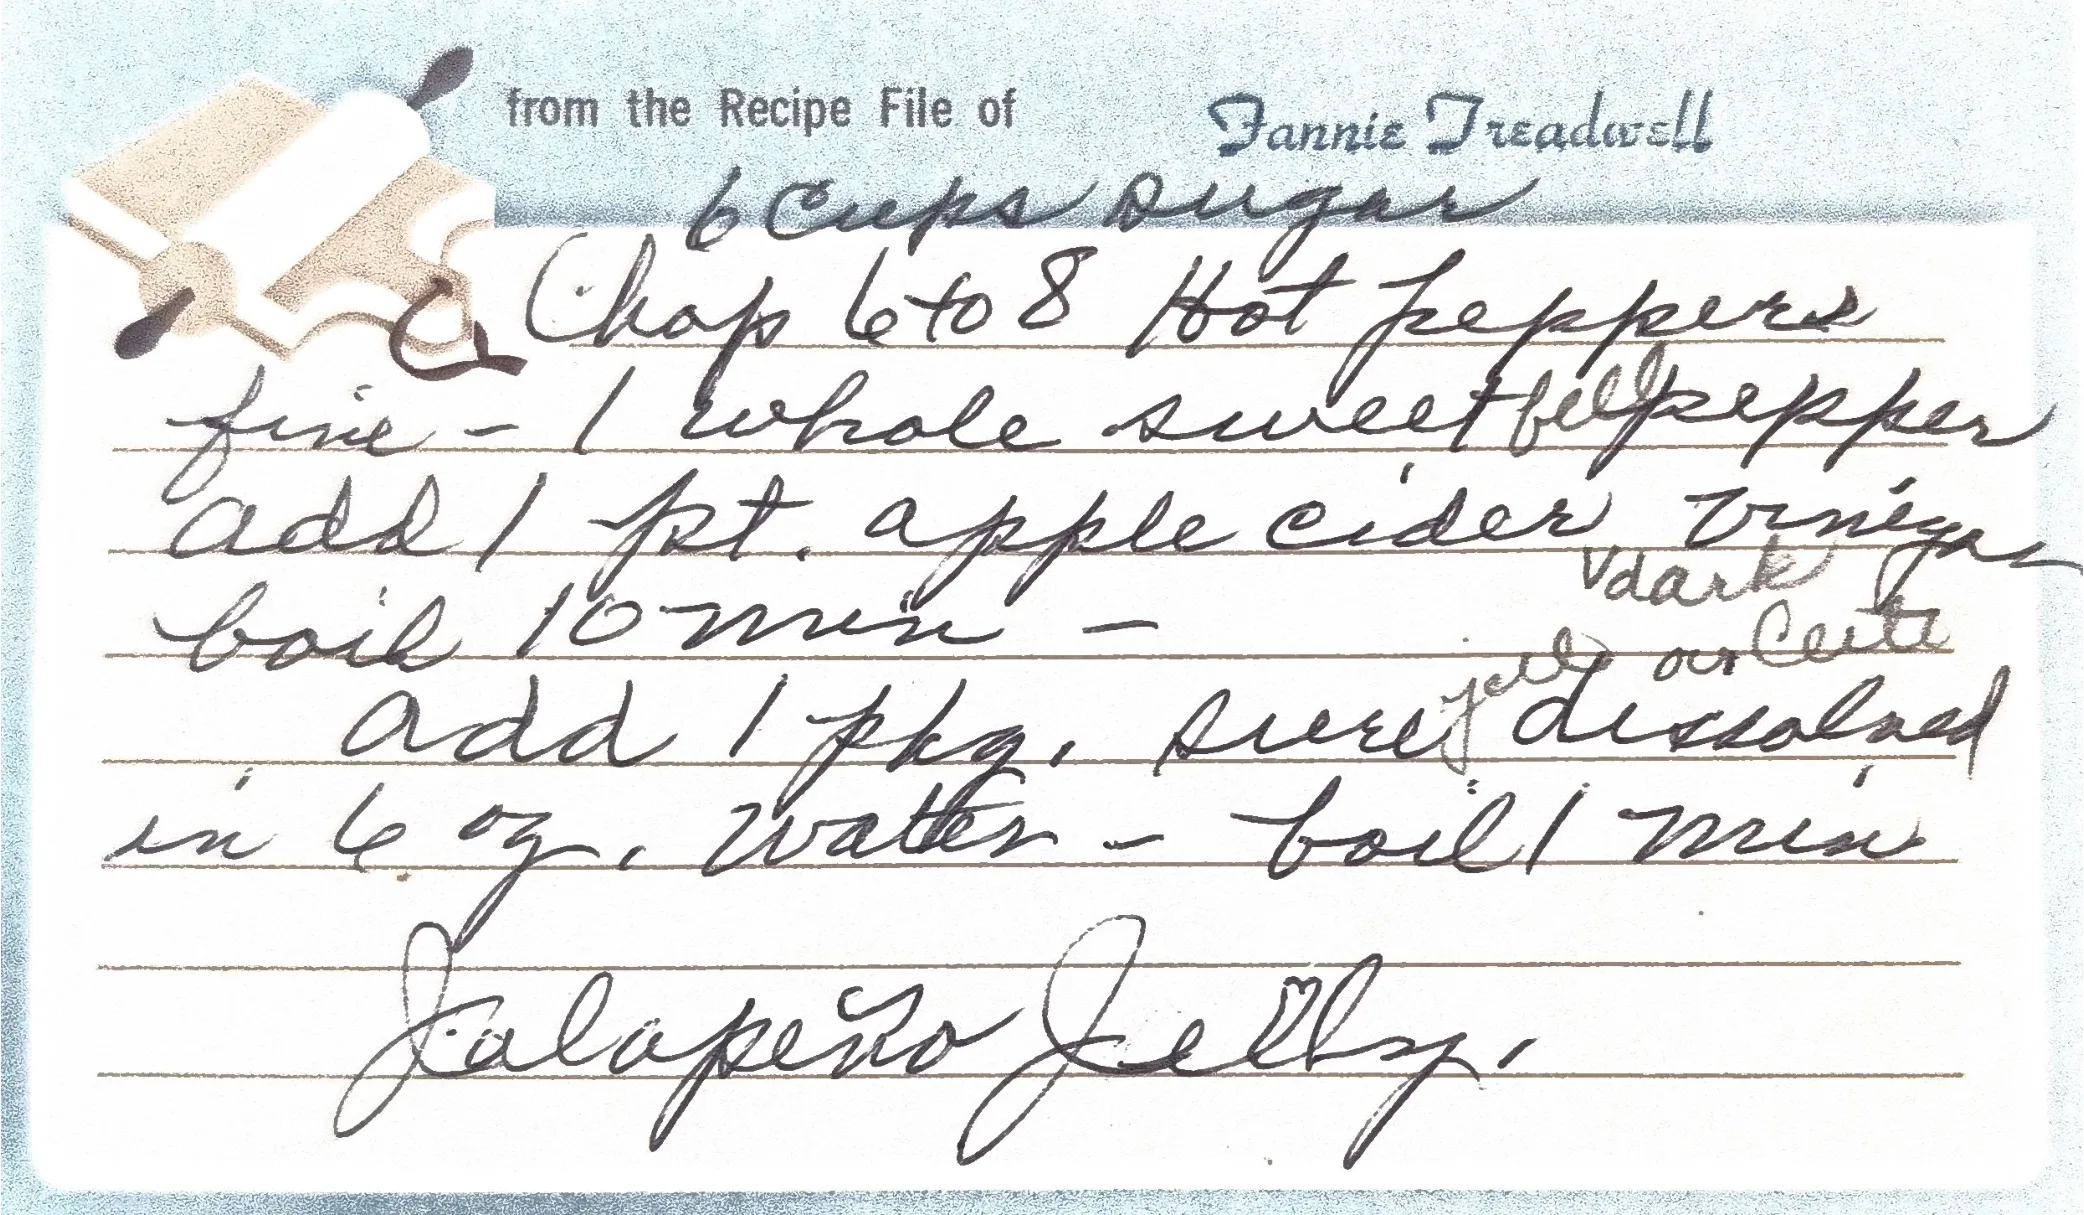 from the Recipe File of Fannie Treadwell
6 Cups sugar
Chop 6 to 8 Hot peppers
fine - 1 whole sweet bell pepper
add 1 pt. apple cider vinegar
dark
boil 10 min -
or
add 1 pkg. sure jell dissolved
in 6 oz. water - boil 1 min
Jalapeño Jelly.